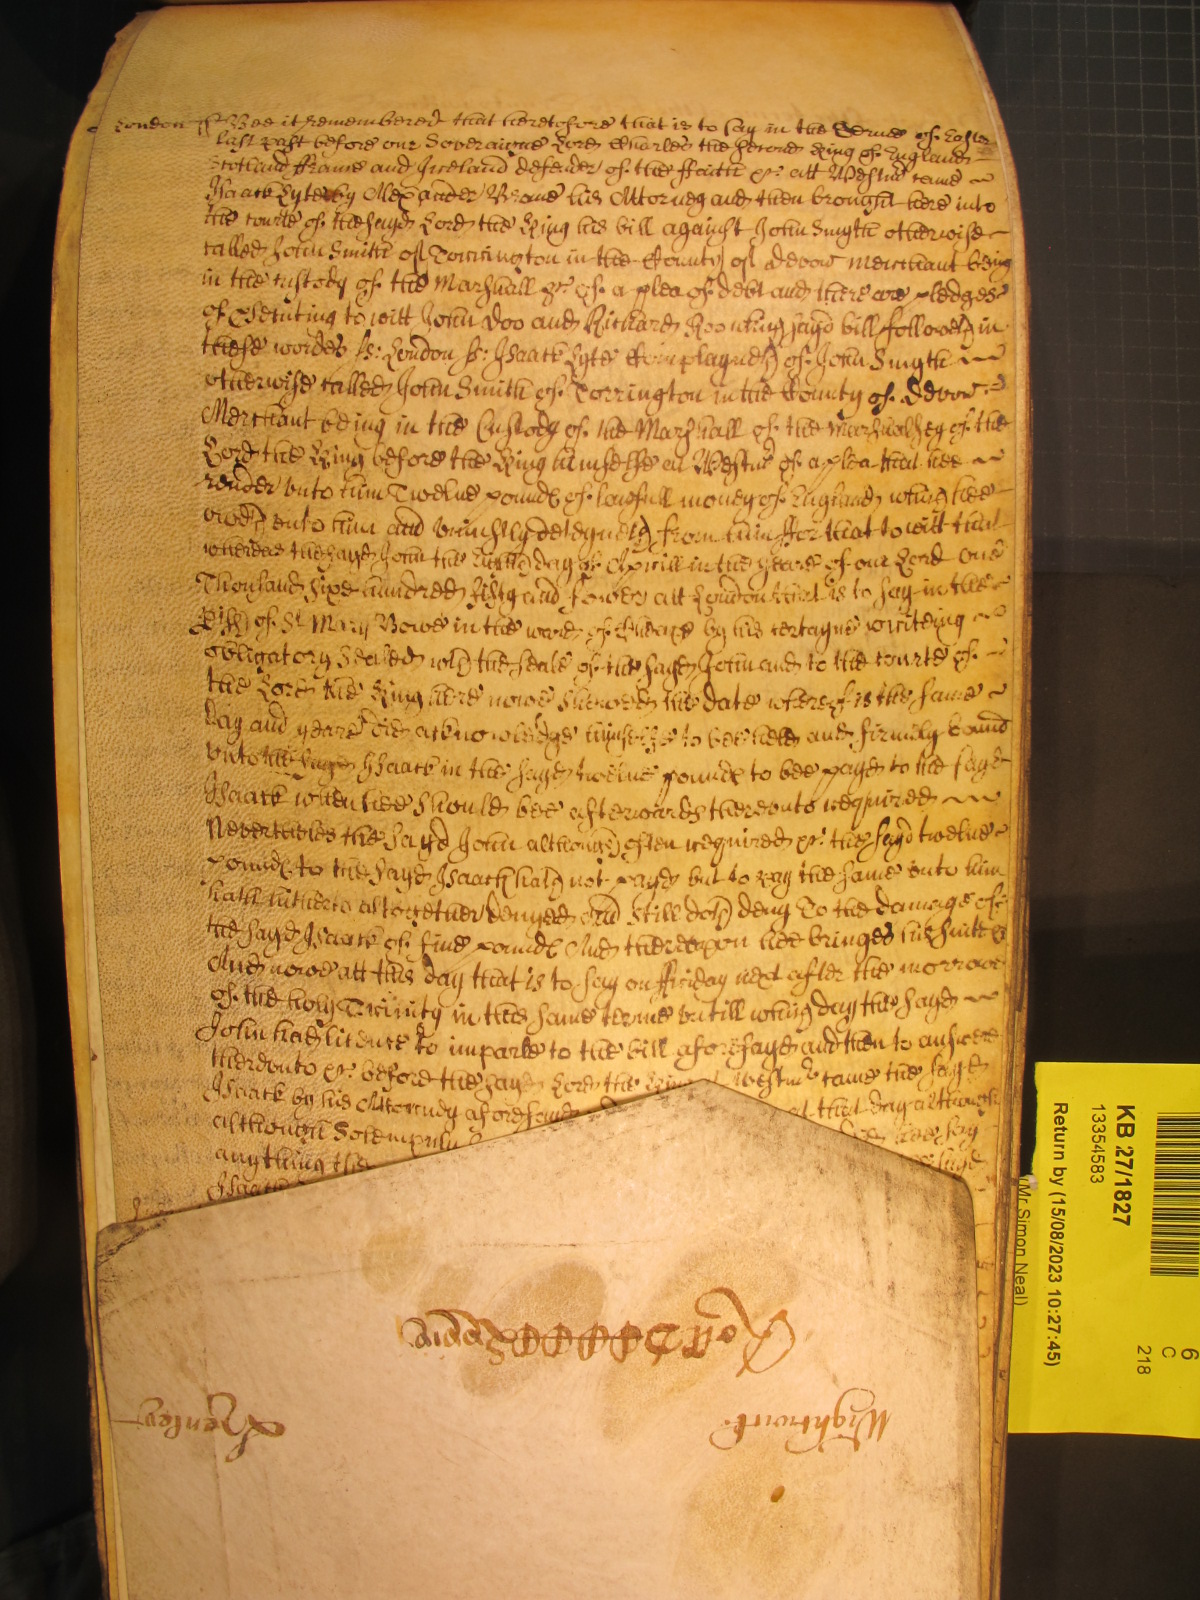 London ss Bee it Remembered that heretofore that is to say in the Terme of Easter
last past before our Soveraigne Lord Charles the second King of England
Scotland ffrance and Ireland defender of the ffaith &c att Westmr came
Isaack Lyte by Alexander Browne his Attorney and then brought here into
the Courte of the sayd Lord the King his bill against John Smyth otherwise
called John Smith of Torrington in the County of Devon merchant being
in the custody of the Marshall &c of a plea of debt and there are pledges
of prosecuting to witt John Doo and Richard Roo which sayd bill followeth in
these wordes ss: London ss: Isaack Lyte Complayneth of John Smyth
otherwise called John Smith of Torrington in the County of Devon
Merchant being in the Custody of the Marshall of the Marshalsey of the
Lord the King before the King himselfe at Westmr of a plea that hee
render unto him Twelve pounds of lawfull money of England which hee
oweth unto him and uniustly deteyneth from him ffor that to witt that
whereas the sayd John the day of Aprill in the yeare of our Lord One
Thousand sixe hundred fifty and fower att London that is to say in the
Pish of St Mary Bowe in the ward of Cheape by his certayne writeing
obligatory Sealed with the seale of the sayd John and to the courte of
the Lord the King here nowe shewed the date whereof is the same
day and yeare did acknowledge himselfe to bee held and firmly bound
unto the sayd Isaack in the sayd twelve pounds to bee payd to the sayd
Isaack when hee should bee afterwards thereunto required
Neverthelesse the sayd John although often required &c the sayd twelve
pounds to the sayd Isaack hath not payd but to pay the same unto him
hath hitherto altogether denyed and still doth deny To the damage of
the sayd Isaack of five pounds And thereupon hee bringes his suite &c
And nowe att this day that is to say on ffriday next after the morrow
of the holy Trinity in this same terme untill which day the sayd
John had licence to imparle to the bill aforesayd and then to answere
thereunto &c before the sayd Lord the King at Westmr came the sayd
Isaack by his Attorney aforesayd at that day although
although Solempnly say
anything the sayd
Isaack
Wightwick
Henley
KB 27/1827
13354583
Return by (15/08/2023 10:27:45)
(Mr Simon Neal)
6
C
218